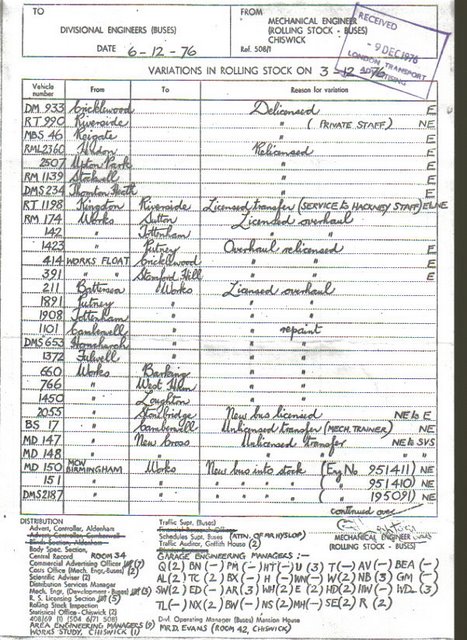 TO
DIVISIONAL ENGINEERS (BUSES)
DATE 6-12-76
FROM
MECHANICAL ENGINEER
(ROLLING STOCK - BUSES)
CHISWICK
Ref. 508/1
RECEIVED
- 9 DEC 1976
LONDON TRANSPORT
ADVERTISING
VARIATIONS IN ROLLING STOCK ON 3-12-76
Vehicle number From To Reason for variation
DM 933 Cricklewood Delicensed E
RT 990 Riverside " (PRIVATE STAFF) NE
MBS 46 Reigate " E
RML 2360 Hendon Relicensed E
2507 Upton Park " E
RM 1139 Stockwell " E
DMS 234 Thornton Heath " E
RT 1198 Kingston Riverside Licensed transfer (SERVICE to HACKNEY STAFF) E to NE
RM 174 Works Sutton Licensed overhaul
142 " Tottenham " "
1423 " Putney Overhaul relicensed E
414 WORKS FLOAT Cricklewood " " E
391 " " Stamford Hill " " E
211 Battersea Works Licensed overhaul
1891 Putney " " "
1908 Tottenham " " "
1101 Camberwell " " repaint
DMS 653 Hornchurch " " "
1372 Fulwell " " "
660 Works Barking " "
766 " West Ham " "
1450 " Loughton " "
2055 " Stonebridge New bus licensed NE to E
BS 17 " Camberwell Unlicensed transfer (MECH. TRAINER) NE
MD 147 " New Cross Unlicensed transfer NE to SVS
MD 148 " " " "
MD 150 MCW BIRMINGHAM Works New bus into stock (Eng No 951411) NE
151 " " " " " " ( " " 951410) NE
DMS 2187 " " " " " " ( " " 195091) NE
continued over
MECHANICAL ENGINEER
(ROLLING STOCK - BUSES)
DISTRIBUTION
Advert. Controller, Aldenham
Advert. Controller, Camberwell
Blinds Section, Aldenham
Body Spec. Section,
Central Record ROOM 34
Commercial Advertising Officer (7)
Costs Office (Mech. Engr. Buses) (2)
Scientific Adviser (2)
Distribution Services Manager
Mech. Engr. (Development - Buses) (3)
R. S. Licensing Section (5)
Rolling Stock Inspection
Statistical Office - Chiswick (2)
408/69 (1) 504 671 508
AREA ENGINEERING MANAGERS (9)
WORKS STUDY, CHISWICK (1)
Traffic Supt. (Buses)
Schedules Supt. (Buses) (ATTN. OF MR. HYSLOP)
Traffic Auditor, Griffith House (2)
GARAGE ENGINEERING MANAGERS:-
Divl. Operating Manager (Buses) Mansion House
MR. D. EVANS (ROOM 42, CHISWICK)